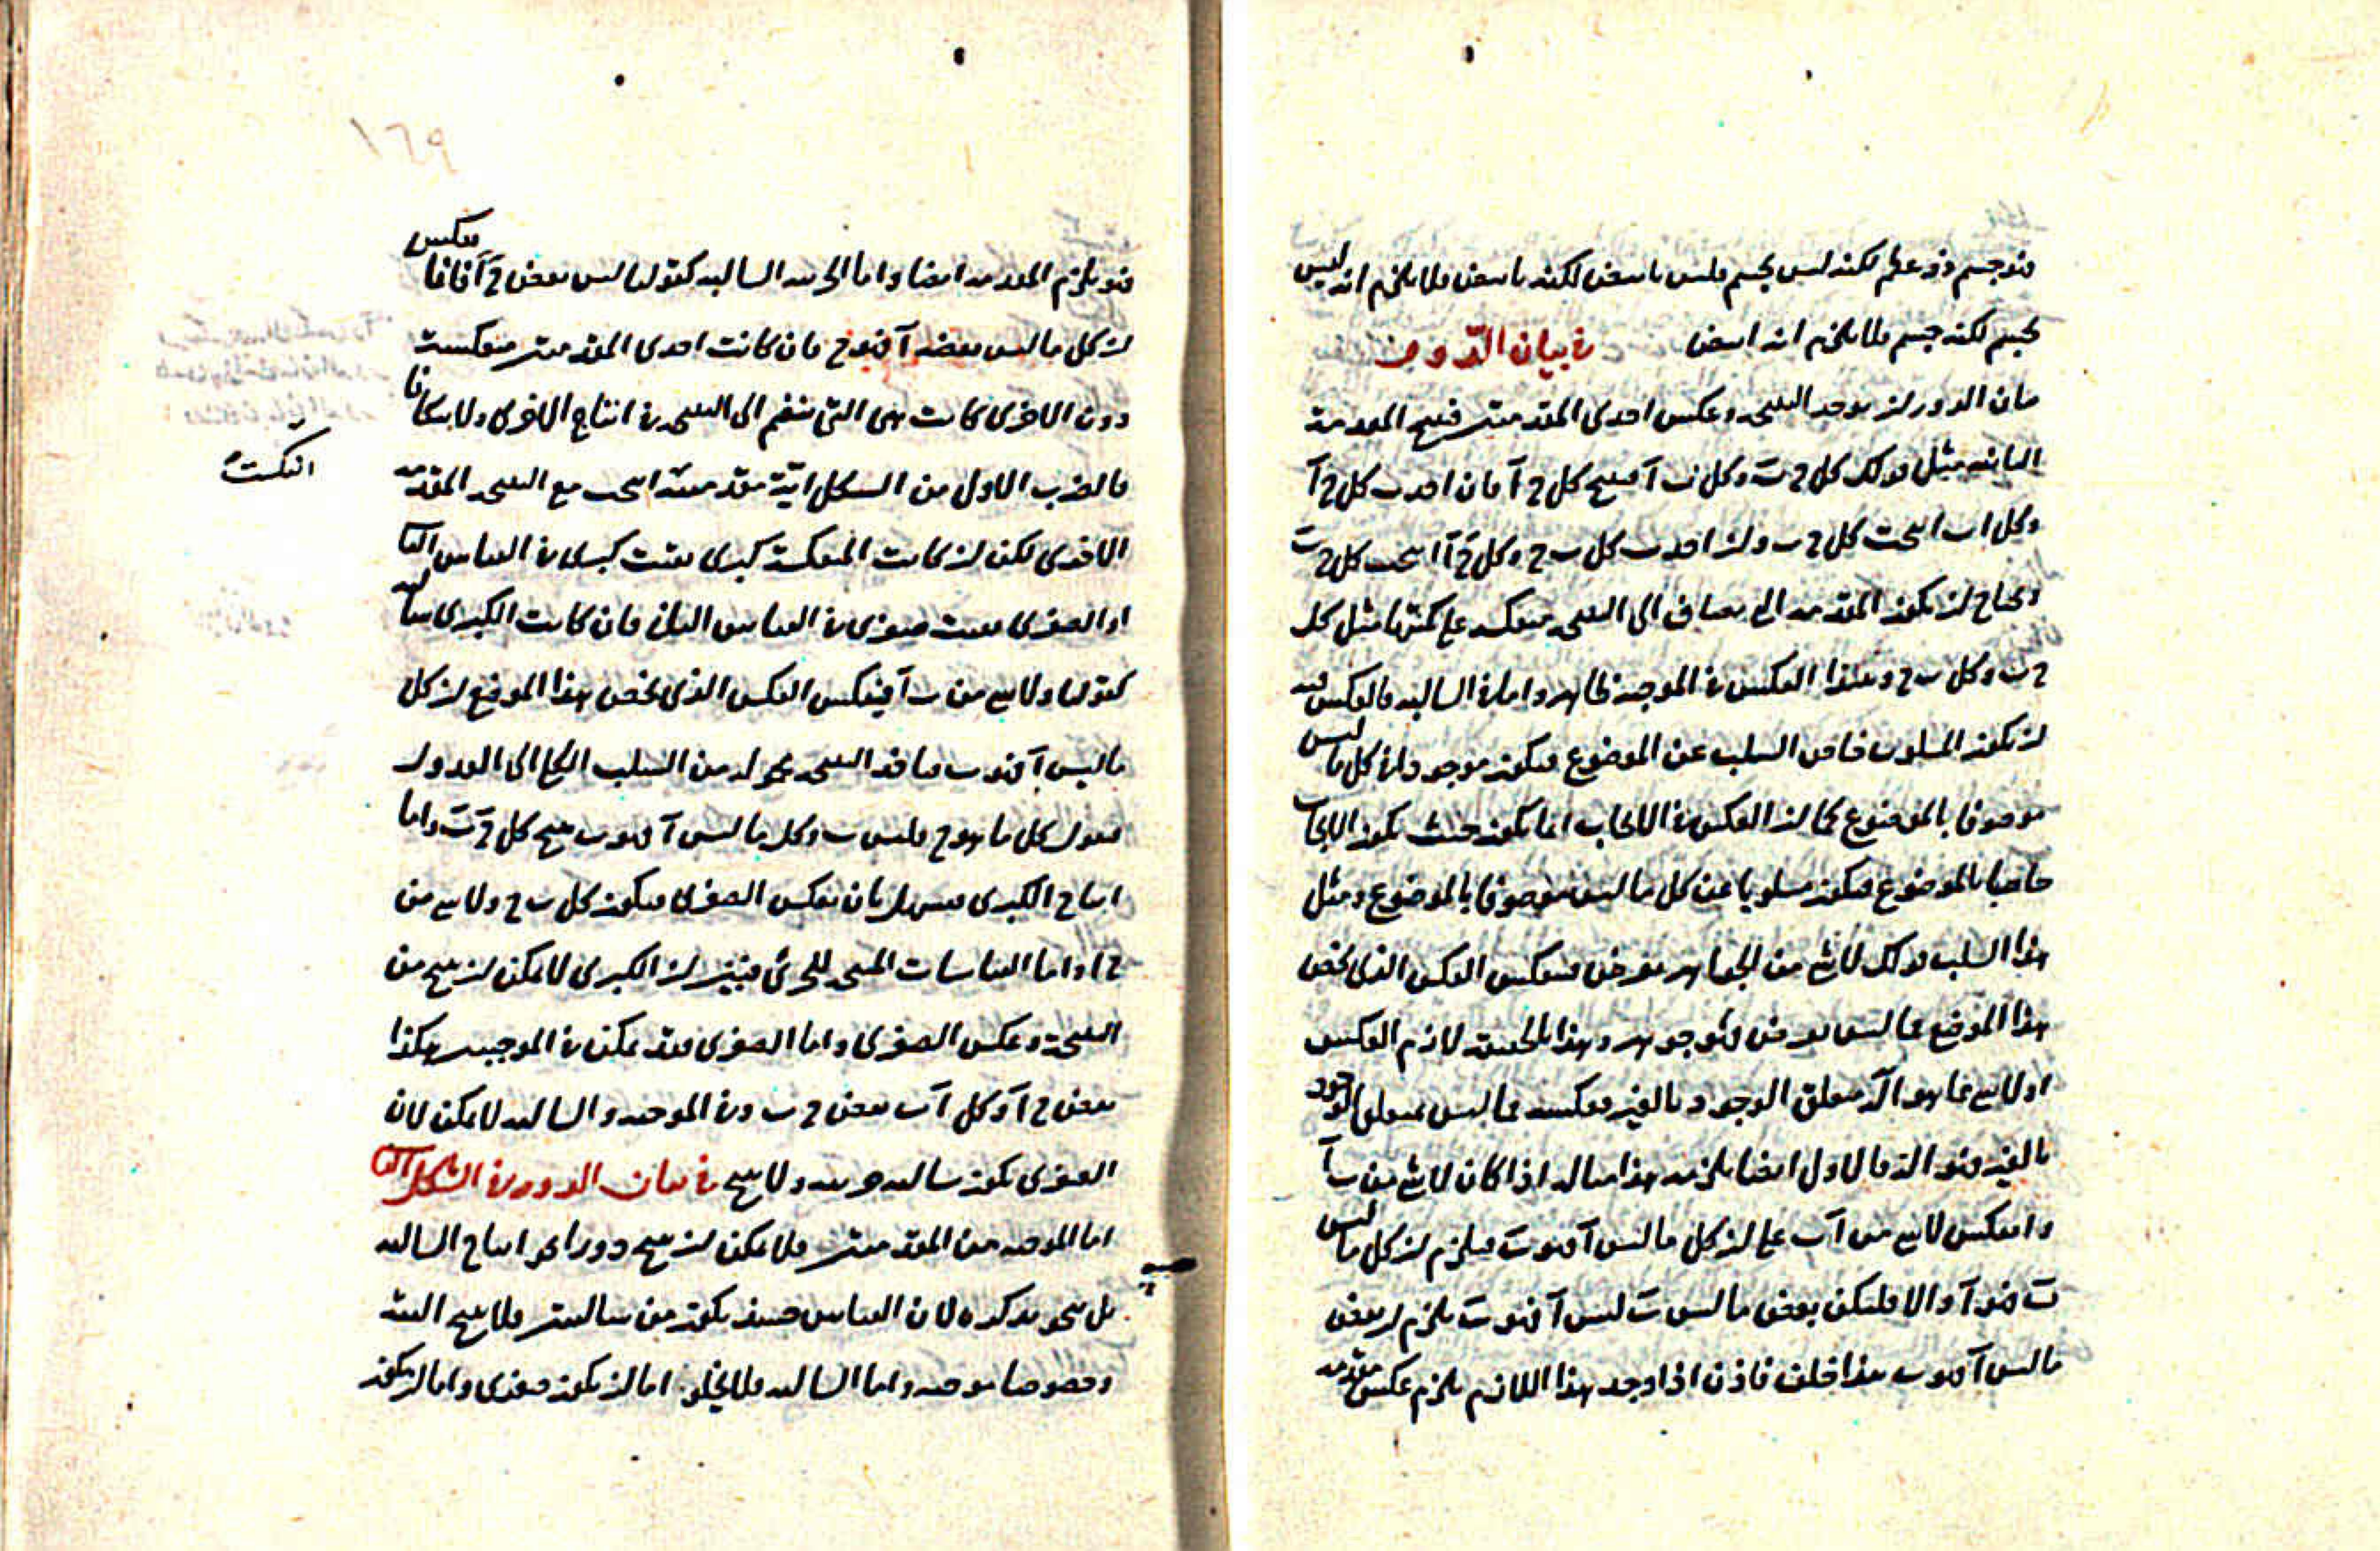 فهو جسم ذو عظم لكنه ليس بجسم فليس بابيض لكنه بابيض فلا يلزم انه ليس
بجسم لكنه جسم فلا يلزم انه ابيض في بيان الدور
بيان الدور ان يوخذ النتيجة وعكس احدى المقدمتين فينتج المقدمة
الثانية مثل قولك كل ج ب وكل ب آ فينتج كل ج آ فان اخذت كل ج آ
وكل ا ب انتجت كل ج ب وان اخذت كل ب ج وكل ج آ انتجت كل ب
ويحتاج ان يكون المقدمة التي تضاف الى النتيجة منعكسة على كميتها مثل كل
ج ب وكل ب ج وهذا العكس في الموجبة ظاهر واما في السالبة فالعكس فيه
ان يكون المسلوب خاص السلب عن الموضوع فيكون موجودا في كل ما ليس
موصوفا بالموضوع كما ان العكس في الايجاب انما يكون حيث يكون الايجاب
خاصا بالموضوع فيكون مسلوبا عن كل ما ليس موصوفا بالموضوع ومثل
هذا السلب قولك لا شي من الجواهر بعرض فينعكس العكس الذي يخص
هذا الموضع ما ليس بعرض فهو جوهر وهذا بالحقيقة لازم العكس
او لا شي مما هو الآ متعلق الوجود بالغير فعكسه مما ليس بمتعلق الوجود
بالغير فهو الآ فالاول ايضا يلزمه هذا مثاله اذا كان لا شي من ب آ
وانعكس لا شي من آ ب على ان كل ما ليس آ فهو ب فيلزم ان كل ما ليس
ب فهو آ والا فليكن بعض ما ليس ب ليس آ فهو ب يلزم ان بعض
ما ليس آ فهو ب هذا خلف فاذن اذا وجد هذا اللازم يلزم عكس مقدمه
فهو يلزم المقدمة ايضا واما الجزئية السالبة كقولنا ليس بعض ج آ فانما ينعكس
ان كل ما ليس بعضه آ فهو ج فان كانت احدى المقدمتين منعكسة
دون الاخرى كانت هي التي تنضم الى النتيجة في انتاج الاخرى ولا يتكافا
فالضرب الاول من الشكل اية مقدمة انتجت مع النتيجة المقدمة
انعكست
الاخرى لكن ان كانت المنعكسة كبرى بقيت كبرى في القياس الثاني
او الصغرى بقيت صغرى في القياس الثاني فان كانت الكبرى سالبة
كقولنا ولا شي من ب آ فينعكس العكس الذي يخص هذا الموضع ان كل
ما ليس آ فهو ب فناخذ النتيجة محولة من السلب الكلي الى العدول
فنقول كل ما هو ج فليس ب وكل ما ليس آ فهو ب ينتج كل ج ب واما
انتاج الكبرى فسهل بان نعكس الصغرى فيكون كل ب ج ولا شي من
ج ا واما القياسات المنتجة للجزئي فبين ان الكبرى لا يمكن ان ينتج من
النتيجة وعكس الصغرى واما الصغرى فقد يمكن في الموجبتين هكذا
بعض ج آ وكل آ ب بعض ج ب وفي الموجبة والسالبة لا يمكن لان
الصغرى يكون سالبة جزئية ولا ينتج في بيان الدور في الشكل الثاني
اما الموجبة من المقدمتين فلا يمكن ان ينتج دورا نحو انتاج السالبة
بل نحو نذكره لان القياس حينئذ يكون من سالبتين فلا ينتج البتة
وخصوصا موجبة واما السالبة فلا يخلو اما ان يكون صغرى واما ان يكون